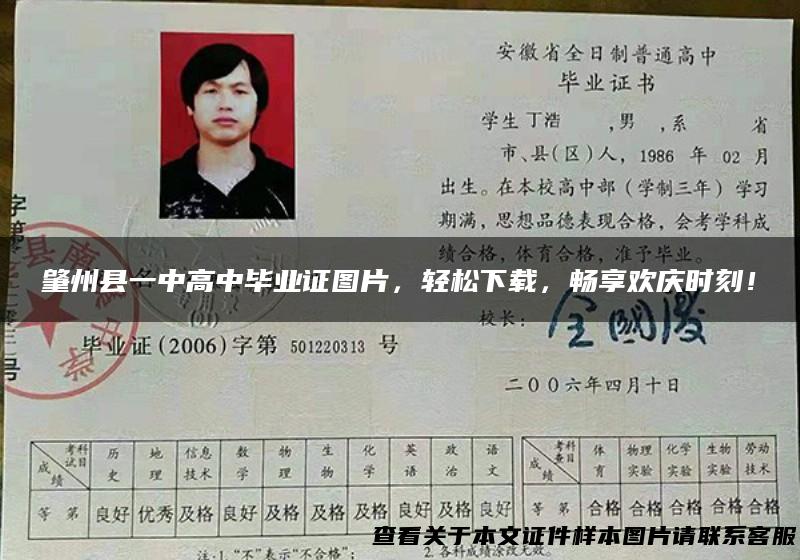 安徽省全日制普通高中
毕业证书
学生 丁浩 ,男 ,系 省
市、县(区)人, 1986 年 02 月
出生。在本校高中部（学制三年）学习
期满，思想品德表现合格，会考学科成
绩合格，体育合格，准予毕业。
肇州县一中高中毕业证图片，轻松下载，畅享欢庆时刻！
校长：
毕业证(2006)字第 501220313 号
二〇〇六年四月十日
考试科目 成绩 历史 地理 信息技术 数学 物理 生物 化学 英语 政治 语文
等第 良好 优秀 及格 良好 及格 及格 及格 良好 及格 良好
考查科目 成绩 体育 物理实验 化学实验 生物实验 劳动技术
等第 合格 合格 合格 合格 合格
注:1."不"表示"不合格"; 2.各科成绩涂改无效。
查看关于本文证件样本图片请联系客服